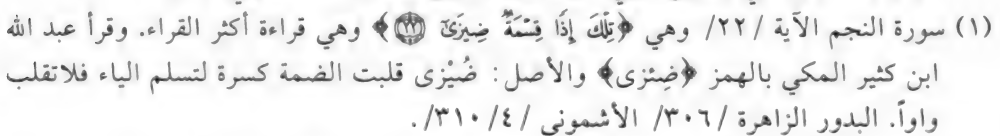 (١) سورة النجم الآية /٢٢/ وهي ﴿تِلْكَ إِذًا قِسْمَةٌ ضِيزَىٰ ﴿٢٢﴾﴾ وهي قراءة أكثر القراء. وقرأ عبد الله
ابن كثير المكي بالهمز ﴿ضِئزى﴾ والأصل: ضُيْزى قلبت الضمة كسرة لتسلم الياء فلا تقلب
واواً. البدور الزاهرة /٣٠٦/ الأشموني /٤/٣١٠/.